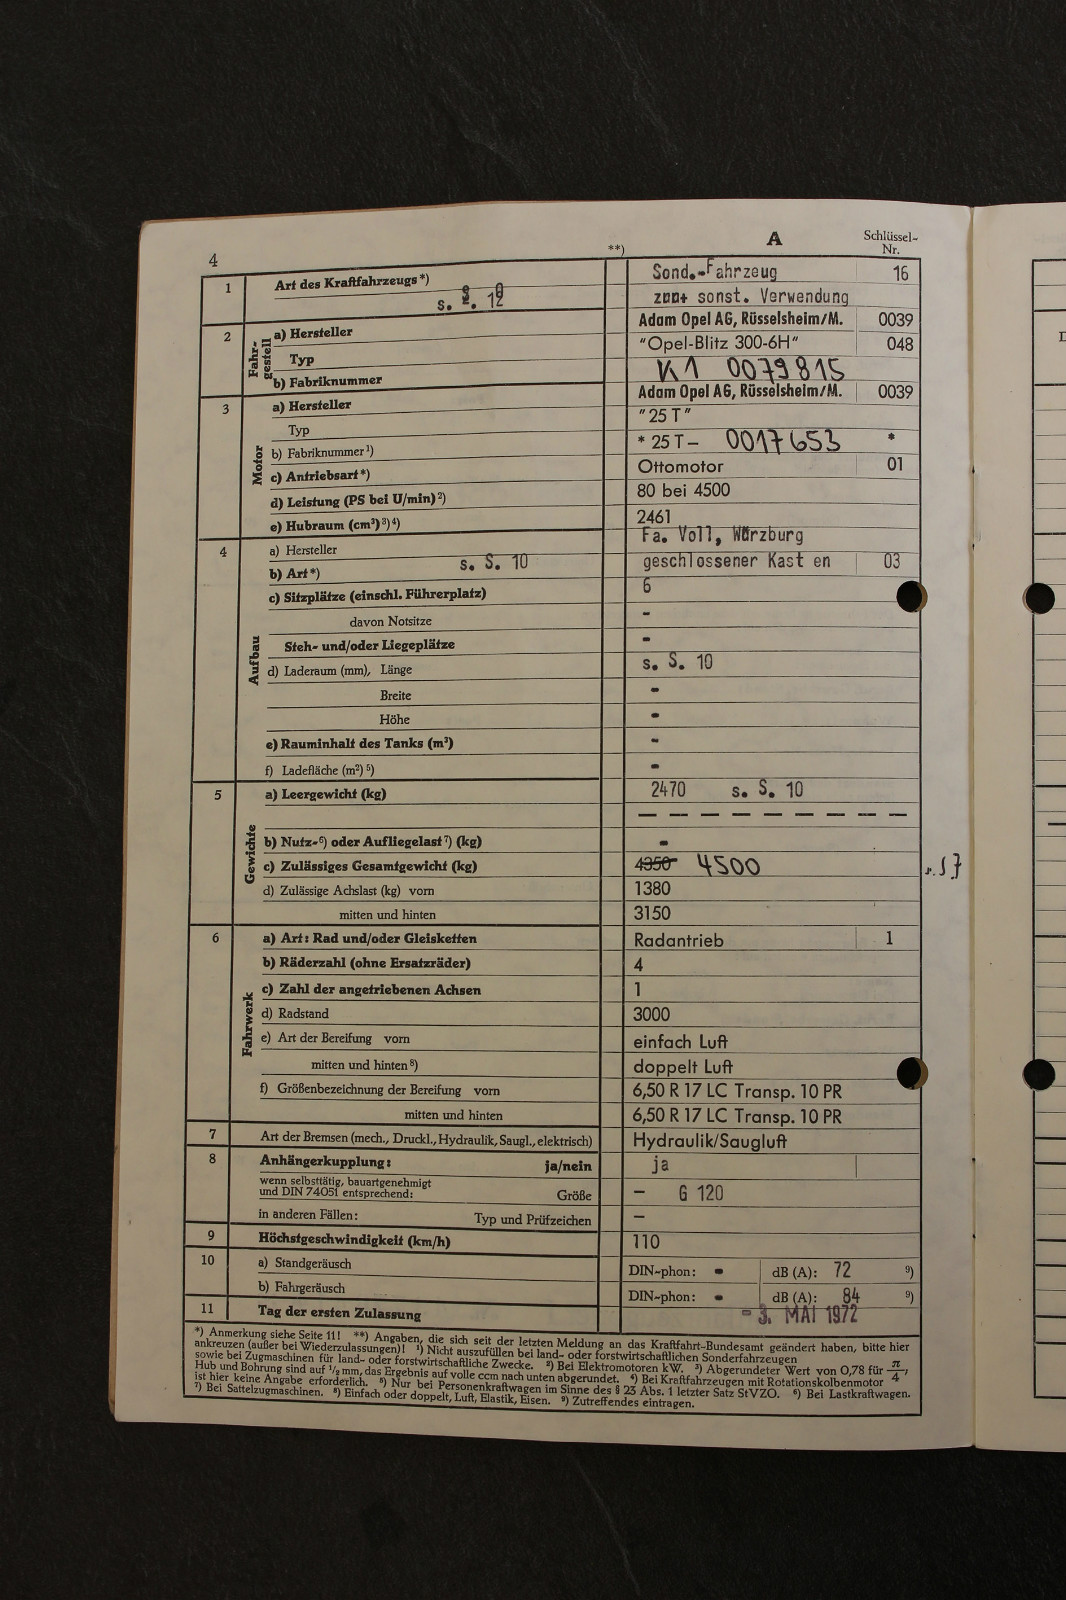 4
**)
A
Schlüssel-
Nr.
1 Art des Kraftfahrzeugs *) Sond.-Fahrzeug 16
s. S. 12 sonst. Verwendung
2 Fahr-gestell a) Hersteller Adam Opel AG, Rüsselsheim/M. 0039
Typ "Opel-Blitz 300-6H" 048
b) Fabriknummer K1 0079815
3 Motor a) Hersteller Adam Opel AG, Rüsselsheim/M. 0039
Typ "25 T"
b) Fabriknummer ¹) * 25 T- 0017653 *
c) Antriebsart *) Ottomotor 01
d) Leistung (PS bei U/min) ²) 80 bei 4500
e) Hubraum (cm³) ³) ⁴) 2461
4 Aufbau a) Hersteller Fa. Voll, Würzburg
b) Art *) s. S. 10 geschlossener Kast en 03
c) Sitzplätze (einschl. Führerplatz) 6
davon Notsitze -
Steh- und/oder Liegeplätze -
d) Laderaum (mm), Länge s. S. 10
Breite -
Höhe -
e) Rauminhalt des Tanks (m³) -
f) Ladefläche (m²) ⁵) -
5 Gewichte a) Leergewicht (kg) 2470 s. S. 10
— — — — — — — — — — —
b) Nutz- ⁶) oder Aufliegelast ⁷) (kg) -
c) Zulässiges Gesamtgewicht (kg) 4350 4500
d) Zulässige Achslast (kg) vorn 1380
mitten und hinten 3150
6 Fahrwerk a) Art: Rad und/oder Gleisketten Radantrieb 1
b) Räderzahl (ohne Ersatzräder) 4
c) Zahl der angetriebenen Achsen 1
d) Radstand 3000
e) Art der Bereifung vorn einfach Luft
mitten und hinten ⁸) doppelt Luft
f) Größenbezeichnung der Bereifung vorn 6,50 R 17 LC Transp. 10 PR
mitten und hinten 6,50 R 17 LC Transp. 10 PR
7 Art der Bremsen (mech., Druckl., Hydraulik, Saugl., elektrisch) Hydraulik/Saugluft
8 Anhängerkupplung: ja/nein ja
wenn selbsttätig, bauartgenehmigt
und DIN 74051 entsprechend: Größe – G 120
in anderen Fällen: Typ und Prüfzeichen –
9 Höchstgeschwindigkeit (km/h) 110
10 a) Standgeräusch DIN-phon: - dB (A): 72 ⁹)
b) Fahrgeräusch DIN-phon: - dB (A): 84 ⁹)
11 Tag der ersten Zulassung - 3. MAI 1972
*) Anmerkung siehe Seite 11! **) Angaben, die sich seit der letzten Meldung an das Kraftfahrt-Bundesamt geändert haben, bitte hier
ankreuzen (außer bei Wiederzulassungen)! ¹) Nicht auszufüllen bei land- oder forstwirtschaftlichen Sonderfahrzeugen
sowie bei Zugmaschinen für land- oder forstwirtschaftliche Zwecke. ²) Bei Elektromotoren kW. ³) Abgerundeter Wert von 0,78 für π/4,
Hub und Bohrung sind auf ½ mm, das Ergebnis auf volle ccm nach unten abgerundet. ⁴) Bei Kraftfahrzeugen mit Rotationskolbenmotor
ist hier keine Angabe erforderlich. ⁵) Nur bei Personenkraftwagen im Sinne des § 23 Abs. 1 letzter Satz StVZO. ⁶) Bei Lastkraftwagen.
⁷) Bei Sattelzugmaschinen. ⁸) Einfach oder doppelt, Luft, Elastik, Eisen. ⁹) Zutreffendes eintragen.